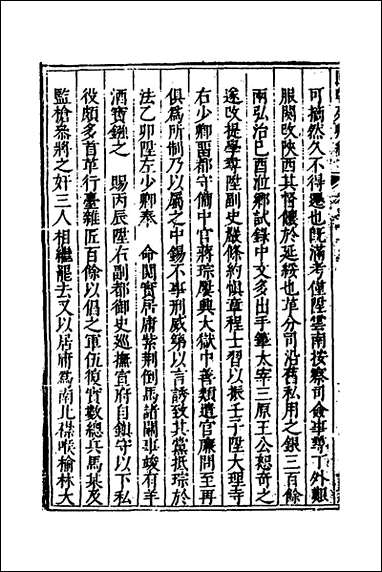 可摘然久不得遷也旣滿考僅陞雲南按察司僉事尋丁外艱
服闋改陝西其督儲於延綏也革分司沿舊私用之銀三百餘
兩弘治己酉涖鄉試錄中文多出手筆太宰三原王公恕奇之
遂改提學尋陞副史嚴條約慎章程士習以振壬子陞大理寺
右少卿留都守備中官蔣琮屢興大獄中善類遣官廉問至再
俱爲所制乃以屬之中錫不事刑威第以言誘致其黨抵琮於
法乙卯陞左少卿奉 命閱實居庸紫荆倒馬諸關事竣有羊
酒寶鏹之 賜丙辰陞右副都御史巡撫宣府自鎮守以下私
役頗多首革行臺雜匠百餘以倡之軍伍復實數總兵馬某及
監槍叅將之奸三人相繼罷去又以居庸爲南北襟喉榆林大